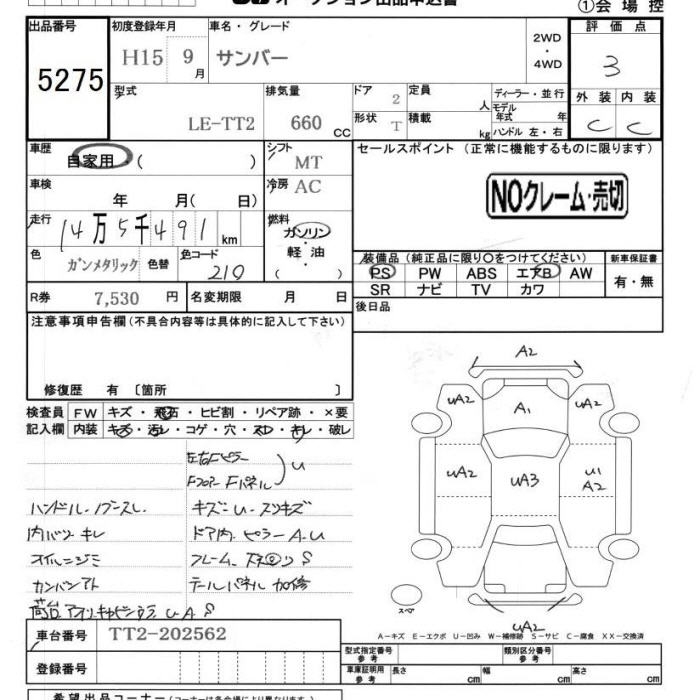 オークション出品申込書
①会場控
出品番号 初度登録年月 車名・グレード 評価点
5275
H15 9月 サンバー 2WD・4WD 3
型式 排気量 ドア 定員 ディーラー・並行 外装 内装
LE-TT2 660CC 2 人 モデル年式 年 C C
形状 T 積載 kg ハンドル 左・右
車歴 シフト セールスポイント (正常に機能するものに限ります)
自家用 ( ) MT
車検 冷房 AC
年 月( 日) NOクレーム・売切
走行 燃料
14万5千491km ガソリン・軽油・( )
色 色替 色コード 装備品(純正品に限り○をつけてください) 新車保証書
ガンメタリック 210 PS PW ABS エアB AW 有・無
SR ナビ TV カワ
R券 7,530円 名変期限 月 日 後日品
注意事項申告欄(不具合内容等は具体的に記入して下さい)
修復歴 有 〔箇所 〕
検査員 FW キズ・飛石・ヒビ割・リペア跡・×要
記入欄 内装 キズ・汚レ・コゲ・穴・スレ・キレ・破レ
左右Fピラー
Fフロアー Fパネル U
ハンドル・ノブスレ キズ=U・スリキズ
内バリ キレ ドア内・ピラー A・U
カンバンアト テールパネル 加修
A2
UA2 A1 UA2
UA2 UA3 U1
A2
スペア
UA2
A−キズ E−エクボ U−凹み W−補修跡 S−サビ C−腐食 XX−交換済
車台番号 TT2-202562
型式指定番号 参考 類別区分番号 参考
登録番号 車庫証明用 参考 長さ cm 幅 cm 高さ cm
希望出品コーナー(コーナーは各会場により異なります)